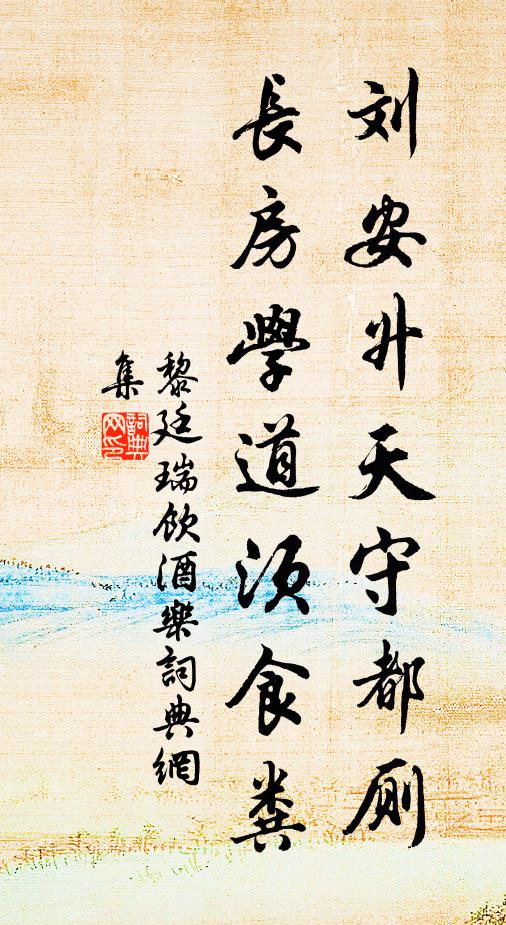 刘安升天守都厕
長房學道须食粪
黎廷瑞飲酒樂詞典網
集
詞典
网印